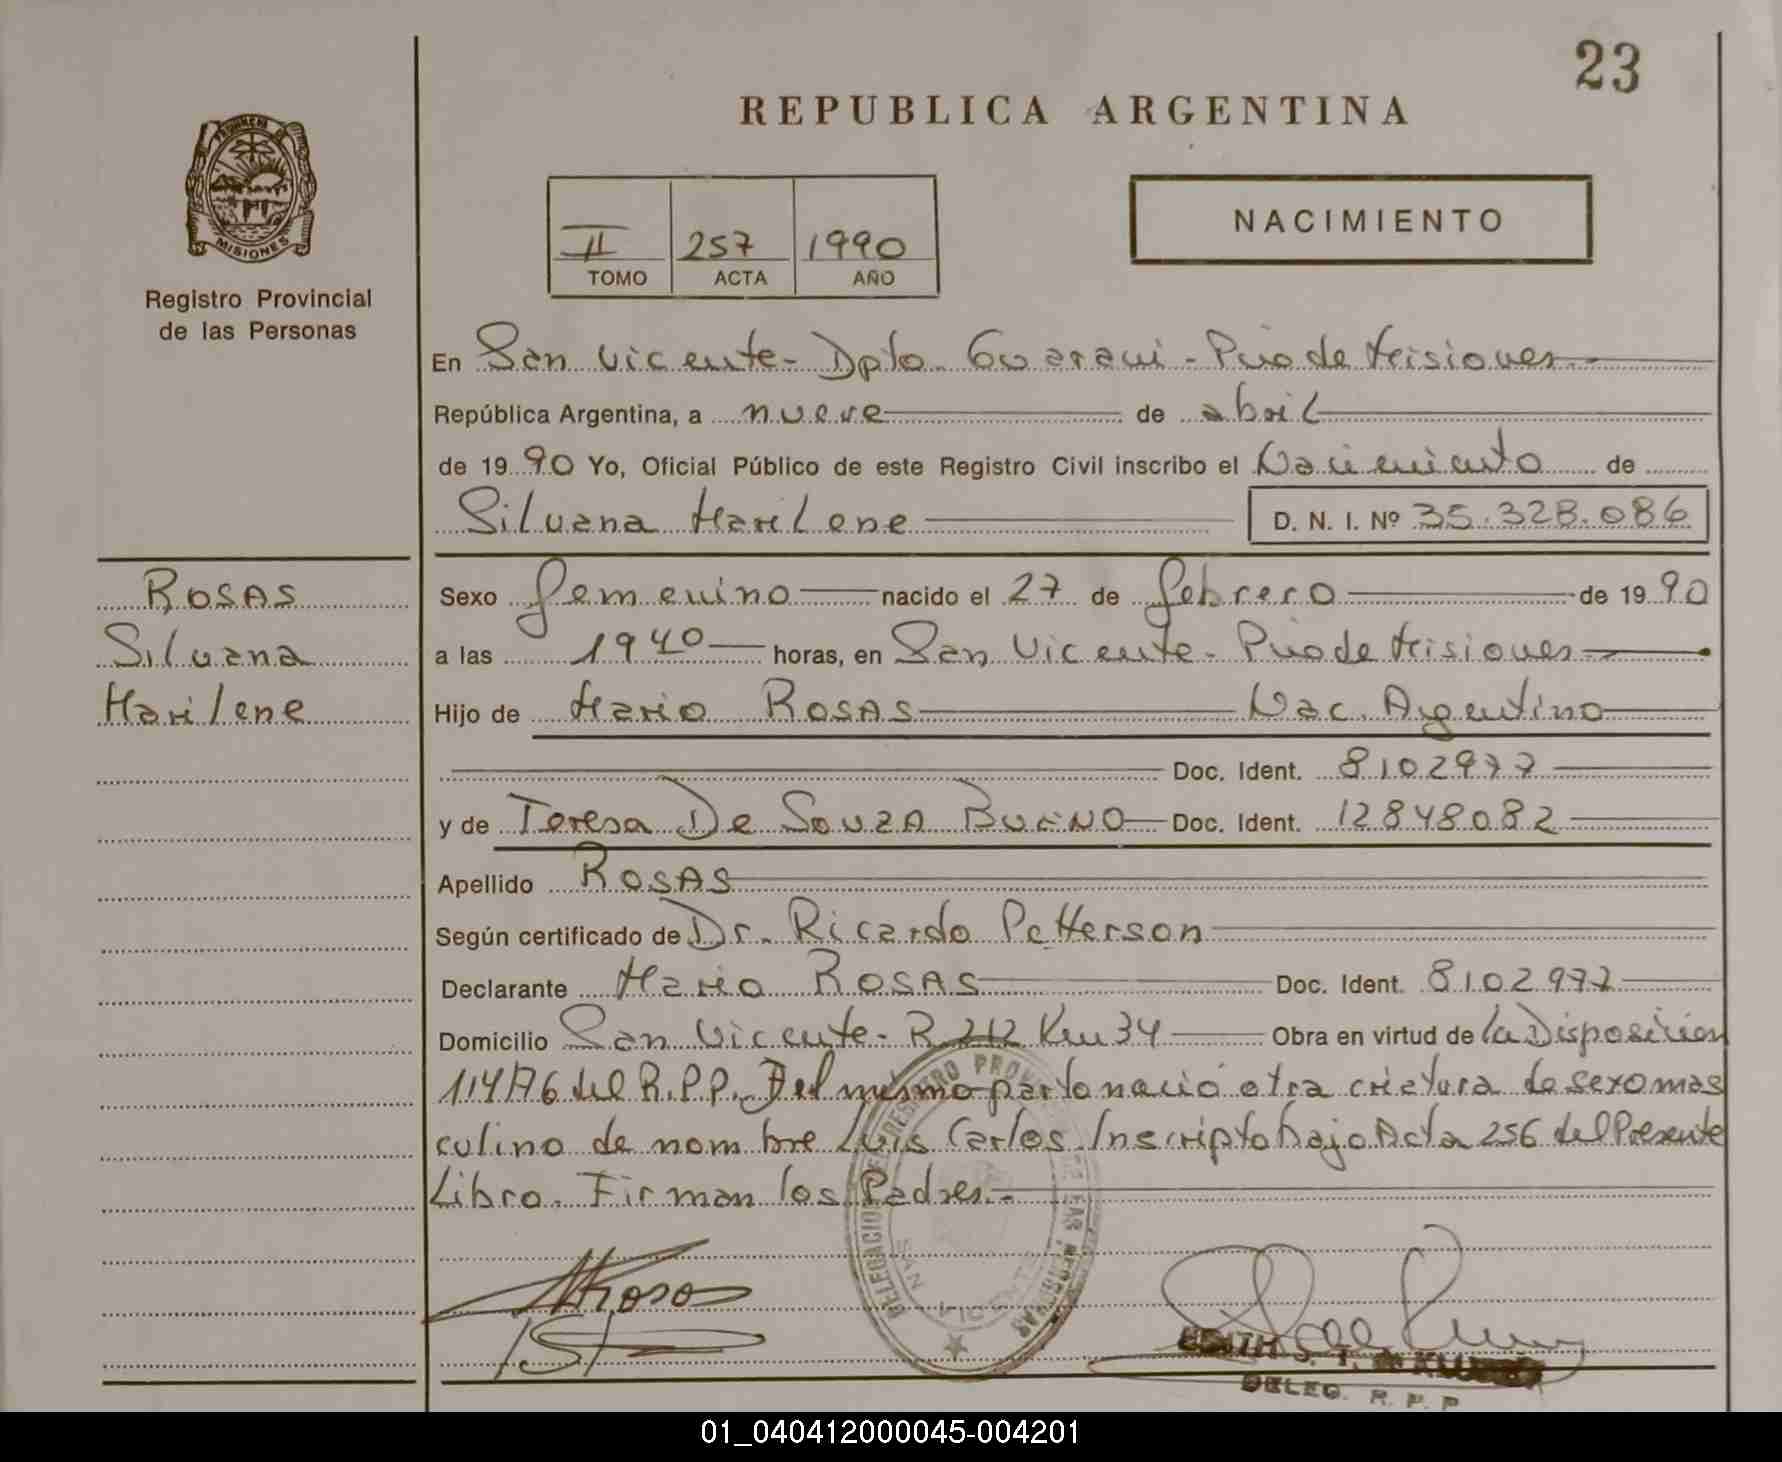 23
REPUBLICA ARGENTINA
PROVINCIA DE
MISIONES
Registro Provincial
de las Personas
II 257 1990
TOMO ACTA AÑO
NACIMIENTO
En San Vicente - Dpto. Guarani - Pcia de Misiones.-
República Argentina, a nueve de abril
de 1990 Yo, Oficial Público de este Registro Civil inscribo el Nacimiento de
Silvana Marilene D. N. I. Nº 35.328.086
ROSAS
Silvana
Marilene
Sexo femenino nacido el 27 de febrero de 1990
a las 19 40 horas, en San Vicente - Pcia de Misiones
Hijo de Mario ROSAS Nac. Argentino
Doc. Ident. 8102977
y de Teresa De SOUZA BUENO Doc. Ident. 12848082
Apellido ROSAS
Según certificado de Dr. Ricardo Petterson
Declarante Mario ROSAS Doc. Ident. 8102977
Domicilio San Vicente - R 212 Km 34 Obra en virtud de la Disposición
114/76 del R.P.P. Del mismo parto nació otra criatura de sexo mas
culino de nombre Luis Carlos. Inscripto bajo Acta 256 del Presente
Libro. Firman los Padres.-
DELEGACION REGISTRO PROVINCIAL DE LAS PERSONAS
SAN VICENTE
EDITH S. T.
DELEG. R. P. P
01_040412000045-004201